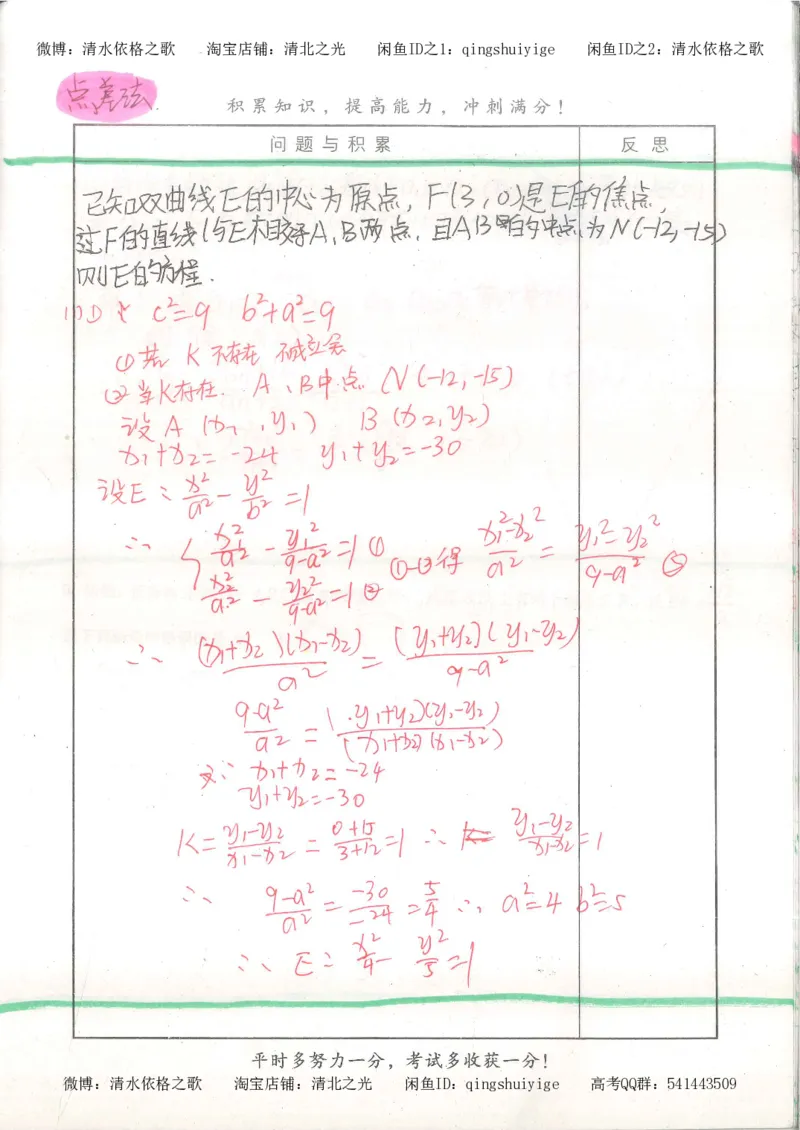 微博：清水依格之歌 淘宝店铺：清北之光 闲鱼ID之1：qingshuiyige 闲鱼ID之2：清水依格之歌
点差法
积累知识，提高能力，冲刺满分！
问题与积累 反思
已知双曲线E的中心为原点，F(3,0)是E的焦点，
过F的直线l与E相交于A、B两点，且AB的中点为N(-12,-15)
则E的方程.
c²=9 b²+a²=9
①若K不存在 不成立
②当K存在 A、B中点N(-12,-15)
设A(x₁,y₁) B(x₂,y₂)
x₁+x₂=-24 y₁+y₂=-30
设E：x²/a²-y²/b²=1
∴ { x₁²/a²-y₁²/(9-a²)=1 ①
x₂²/a²-y₂²/(9-a²)=1 ②
①-②得 (x₁²-x₂²)/a²=(y₁²-y₂²)/(9-a²) ③
∴ (x₁+x₂)(x₁-x₂)/a²=(y₁+y₂)(y₁-y₂)/(9-a²)
(9-a²)/a²=(y₁+y₂)(y₁-y₂)/(x₁+x₂)(x₁-x₂)
又∵ x₁+x₂=-24
y₁+y₂=-30
K=(y₁-y₂)/(x₁-x₂)=(0+15)/(3+12)=1 ∴ (y₁-y₂)/(x₁-x₂)=1
∴ (9-a²)/a²=-30/-24=5/4 ∴ a²=4 b²=5
∴ E：x²/4-y²/5=1
平时多努力一分，考试多收获一分！
微博：清水依格之歌 淘宝店铺：清北之光 闲鱼ID：qingshuiyige 高考QQ群：541443509